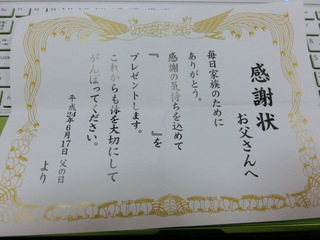 感謝状
お父さんへ
毎日家族のために
ありがとう。
感謝の気持ちを込めて
『　　　　　』を
プレゼントします。
これからも体を大切にして
がんばってください。
平成24年6月17日 父の日
より